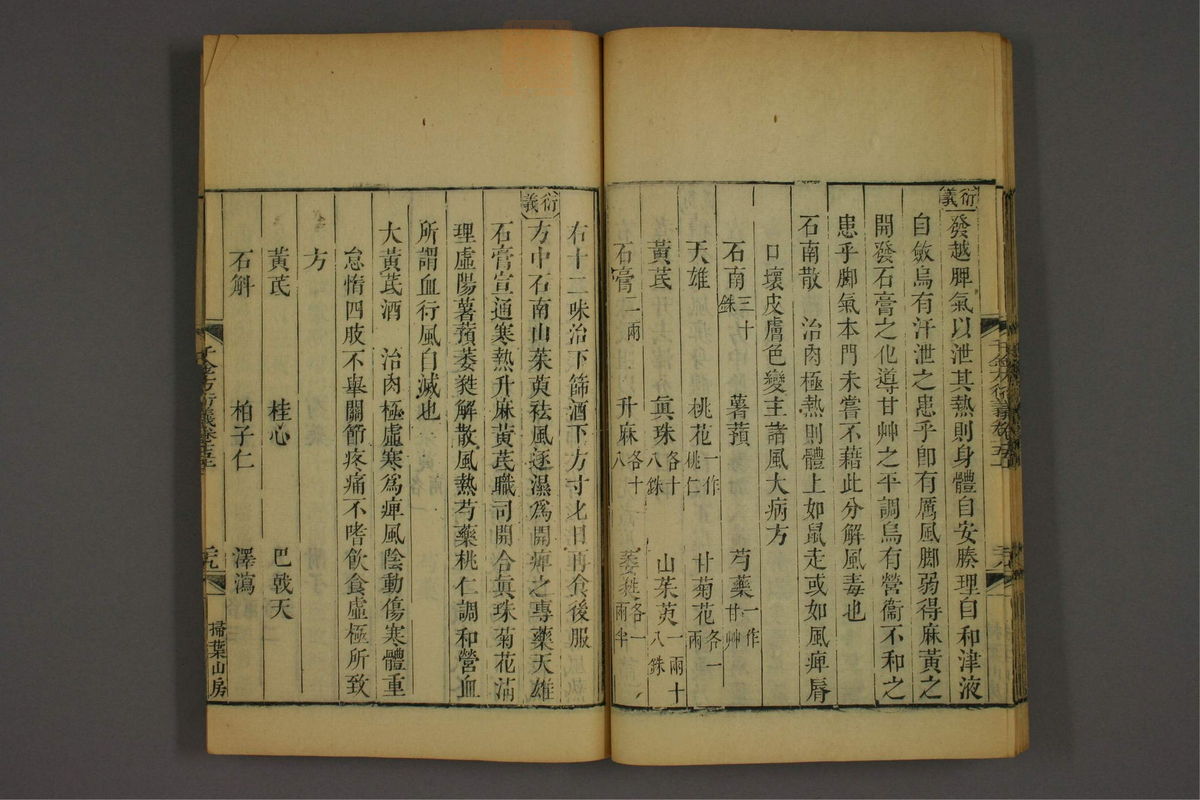 衍義
發越脾氣以泄其熱則身體自安腠理自和津液
自斂烏有汗泄之患乎卽有厲風脚弱得麻黃之
開發石膏之化導甘艸之平調烏有營衞不和之
患乎脚氣本門未嘗不藉此分解風毒也
石南散　治肉極熱則體上如鼠走或如風痺脣
口壞皮膚色變主諸風大病方
石南三十銖　薯蕷　芍藥一作甘艸
天雄　桃花一作桃仁　甘菊花各一兩
黃芪　眞珠各十八銖　山茱萸一兩十八銖
石膏二兩　升麻各十八　萎甤各一兩半
右十二味治下篩酒下方寸匕日再食後服
衍義
方中石南山茱萸祛風逐濕爲開痺之專藥天雄
石膏宣通寒熱升麻黃芪職司開合眞珠菊花淸
理虛陽薯蕷萎甤解散風熱芍藥桃仁調和營血
所謂血行風自滅也
大黃芪酒　治肉極虛寒爲痺風陰動傷寒體重
怠惰四肢不舉關節疼痛不嗜飮食虛極所致
方
黃芪　桂心　巴戟天
石斛　柏子仁　澤瀉
千金方衍義卷十五
三九
掃葉山房